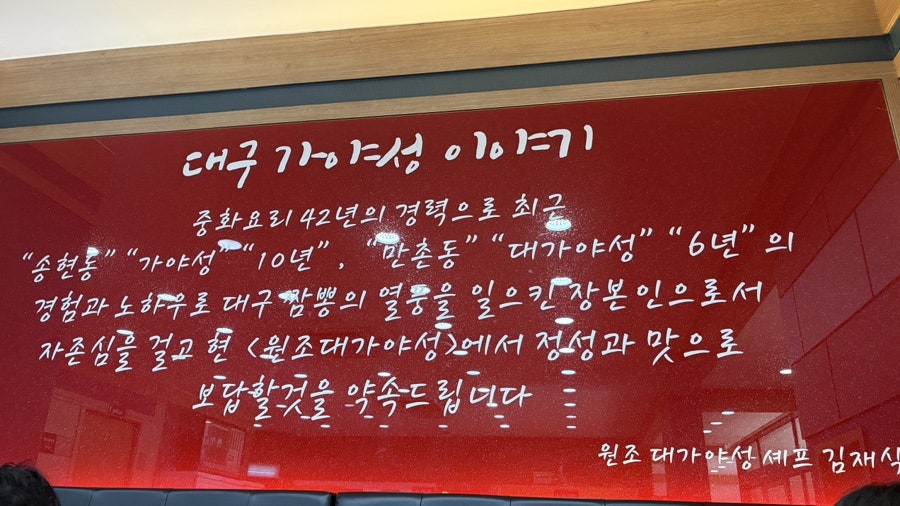 대구 가야성 이야기
중화요리 42년의 경력으로 최근
“송현동” “가야성” “10년”, “만촌동” “대가야성” “6년”의
경험과 노하우로 대구 짬뽕의 열풍을 일으킨 장본인으로서
자존심을 걸고 현 <원조대가야성>에서 정성과 맛으로
보답할것을 약속드립니다
원조 대가야성 셰프 김재식